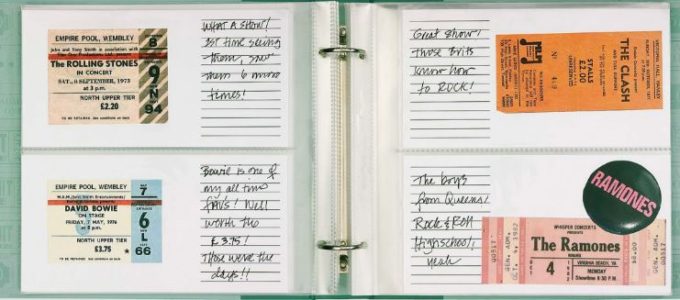 EMPIRE POOL, WEMBLEY
The ROLLING STONES
IN CONCERT
SAT., 8 SEPTEMBER, 1973
at 3 p.m.
NORTH UPPER TIER
£2.20
8
9
N
94
WHAT A SHOW!
1st time seeing
them, saw
them 6 more
times!
EMPIRE POOL, WEMBLEY
DAVID BOWIE
ON STAGE
FRIDAY, 7 MAY, 1976
at 8 p.m.
NORTH UPPER TIER
£3.75
7
6
L
66
Bowie is one of
my all time
favs! Well
worth the
£3.75!
Those were the
days!!
Great show!
Those Brits
know how
to ROCK!
THE CLASH
STALLS
£2.00
The boys
from Queens!
Rock & Roll
Highschool,
yeah
RAMONES
WHISPER CONCERTS
PRESENTS
The Ramones
VIRGINIA BEACH, VA.
OCT.
4
1982
MONDAY
Showtime 8:30 P.M.